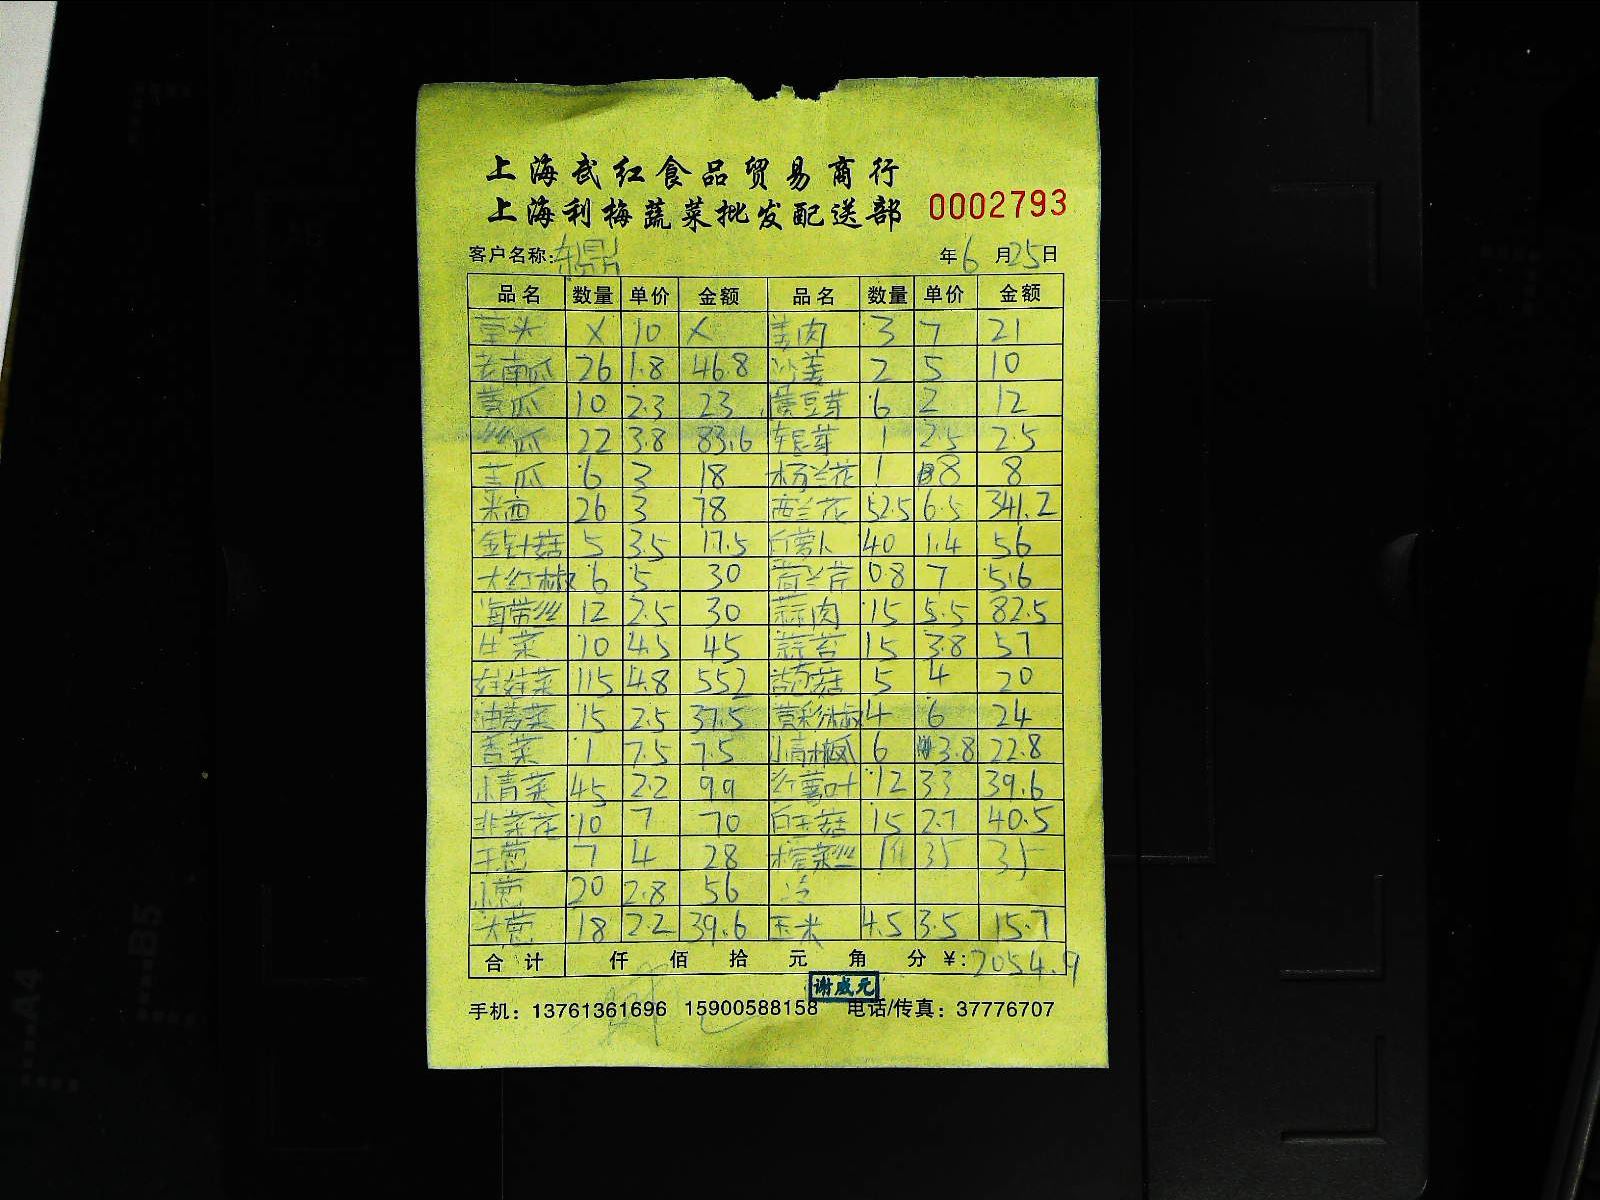 上海武红食品贸易商行
上海利梅蔬菜批发配送部 0002793
客户名称: 年6月25日
品名 数量 单价 金额 品名 数量 单价 金额
X 10 X 姜肉 3 7 21
老南瓜 26 1.8 46.8 沙姜 2 5 10
黄瓜 10 2.3 23 黄豆芽 6 2 12
丝瓜 22 3.8 83.6 银芽 1 2.5 2.5
苦瓜 6 3 18 杨兰花 1 8 8
米西 26 3 78 西兰花 52.5 6.5 341.2
金针菇 5 3.5 17.5 白萝卜 40 1.4 56
大红椒 6 5 30 0.8 7 5.6
海带丝 12 2.5 30 蒜肉 15 5.5 82.5
生菜 10 4.5 45 蒜苔 15 3.8 57
娃娃菜 115 4.8 552 菇 5 4 20
油麦菜 15 2.5 37.5 黄彩椒 4 6 24
香菜 1 7.5 7.5 小青椒 6 3.8 22.8
小青菜 45 2.2 99 红薯叶 12 3.3 39.6
韭菜花 10 7 70 白玉菇 15 2.7 40.5
干葱 7 4 28 榨菜丝 1 35 35
小葱 20 2.8 56
大葱 18 2.2 39.6 玉米 4.5 3.5 15.7
合计 仟 佰 拾 元 角 分 ¥: 2054.9
谢成元
手机: 13761361696 15900588158 电话/传真: 37776707